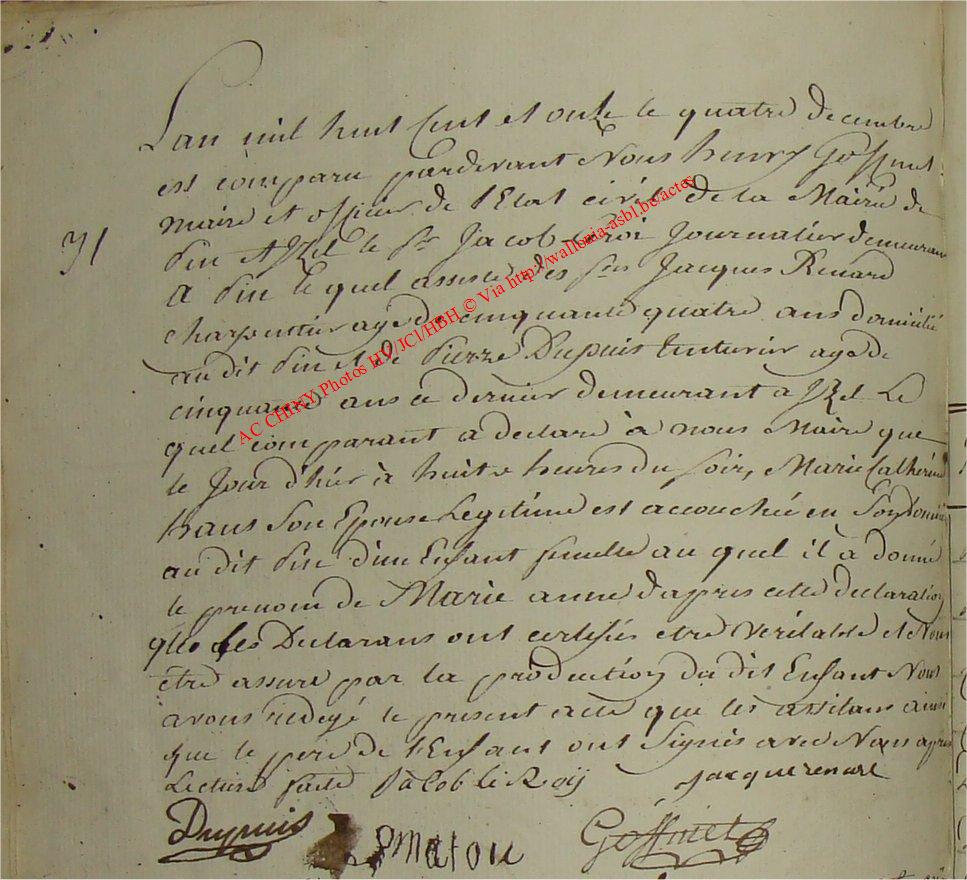 Lan mil huit Cent et onze le quatre decembre
est comparu pardevant Nous henry Goffinet
maire et officier de l'Etat civil de la Mairie de
31
Pin Izel le Sr Jacob Leroi Journalier demeurant
A Pin le quel assisté des Srs Jacques Renard
charpentier agé de cinquante quatre ans domicilié
audit Pin et de Pierre Dupuis tinturier age de
cinquante ans ce dernier demeurant a Izel Le
quel comparant a declaré à nous Maire que
le Jour d'hier à huit heures du soir, Marie Catherine
hans Son Epouse Legitime est accouchée en Son Domicile
audit Pin d'un Enfant femelle au quel il a donné
le prenom de Marie anne d'apres cette declaration
que les Declarans ont certifiés etre Veritable et Nous
être assure par la production du dit Enfant Nous
avons redigé le present acte que les assistans ainsi
que le pere de l'Enfant ont Signés avec Nous apres
Lecture faite Jacob le Roÿ Jacque renard
Dupuis Goffinet
AC CHINY Photos HV/JCl/HBH © Via http://wallonia-asbl.be/actes